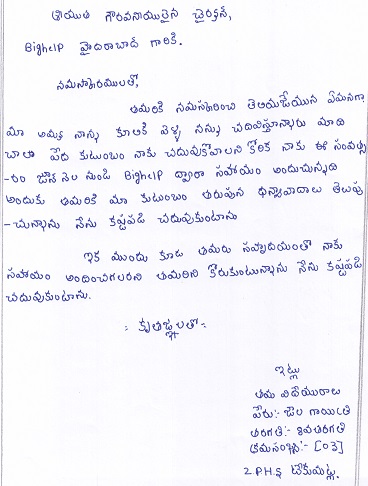 శ్రీయుత గౌరవనీయులైన చైర్మన్,
BigHelP హైదరాబాద్ గారికి.
నమస్కారములతో,
తమరికి నమస్కరించి తెలియజేయునది ఏమనగా
మా అమ్మ నాన్న కూలికి వెళ్ళి నన్ను చదివిస్తూన్నారు మాది
చాలా పేద కుటుంబం నాకు చదువుకోవాలని కోరిక నాకు ఈ సంవత్స
-రం జూన్ నెల నుండి BigHelP ద్వారా సహాయం అందుచున్నది
అందుకు తమరికి మా కుటుంబం తరుపున ధన్యావాదాలు తెలుపు
-చున్నాను నేను కష్టపడి చదువుకుంటాను
ఇక ముందు కూడ తమరు సహృదయంతో నాకు
సహాయం అందించగలరని తమరిని కోరుకుంటున్నాను నేను కష్టపడి
చదువుకుంటాను.
:- కృతజ్ఞలతో:-
ఇట్లు
తమ విధేయురాలు
పేరు:- గాయిత్రి
తరగతి:- 8వతరగతి
క్రమసంఖ్య:- [03]
Z.P.H.S